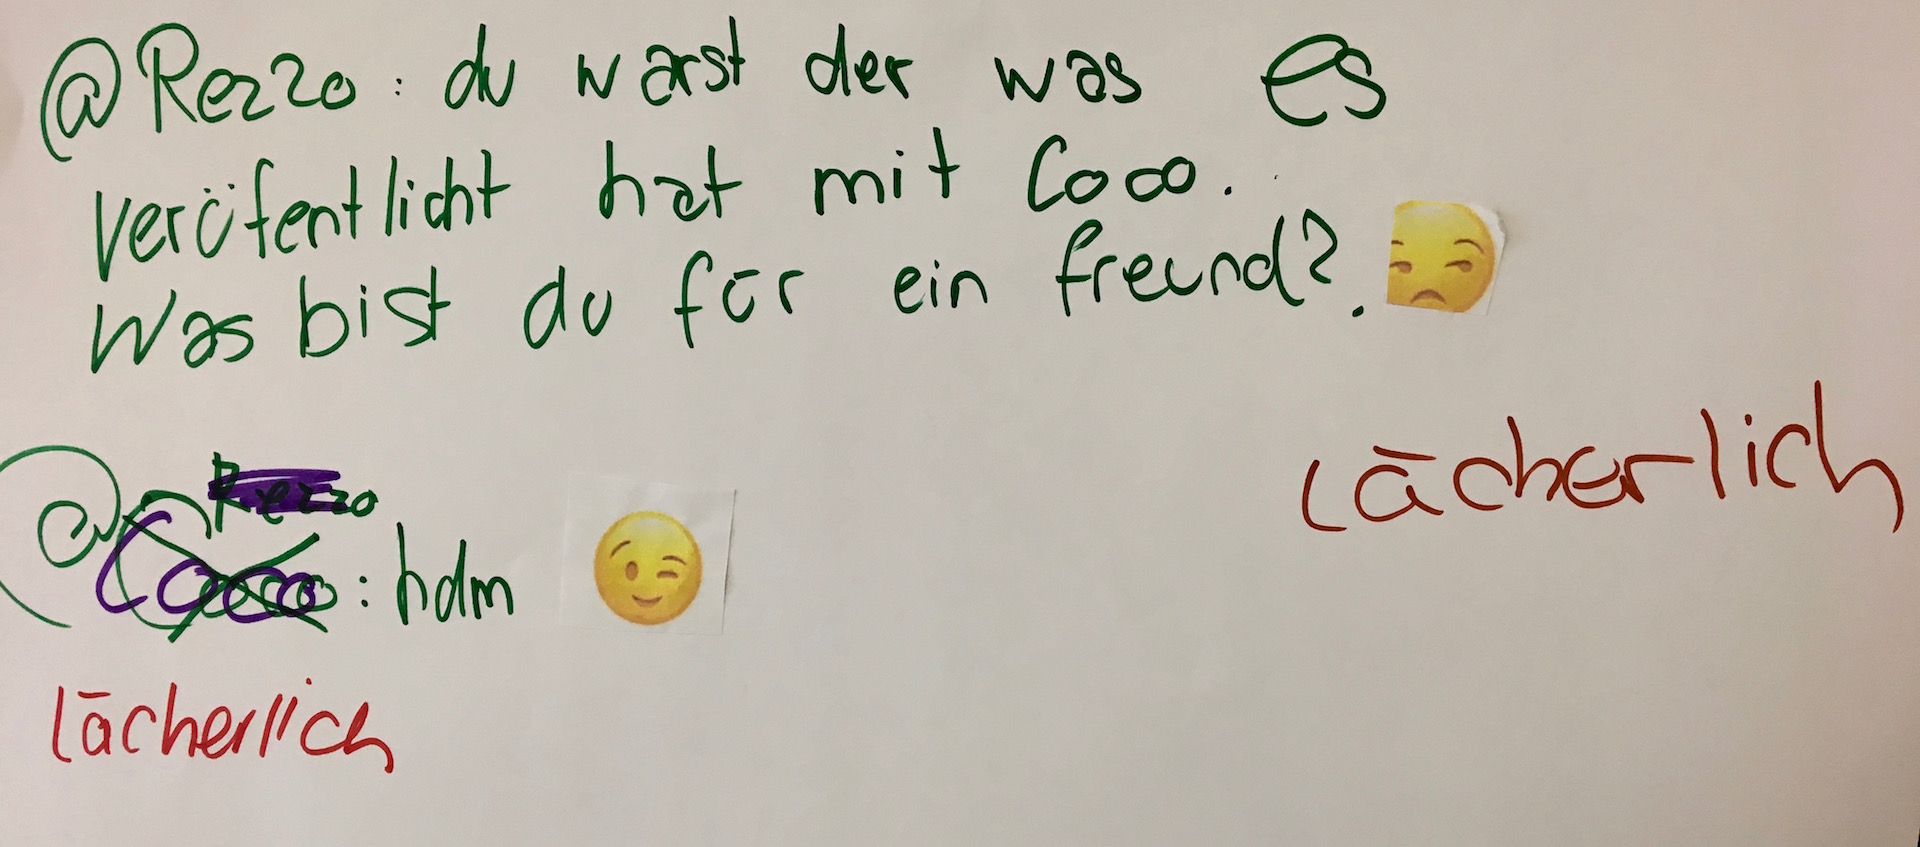 @Rezzo: du warst der was es
veröfentlicht hat mit Coco.
Was bist du für ein freund?.
lächerlich
@Rezzo
Coco: hdm
lächerlich